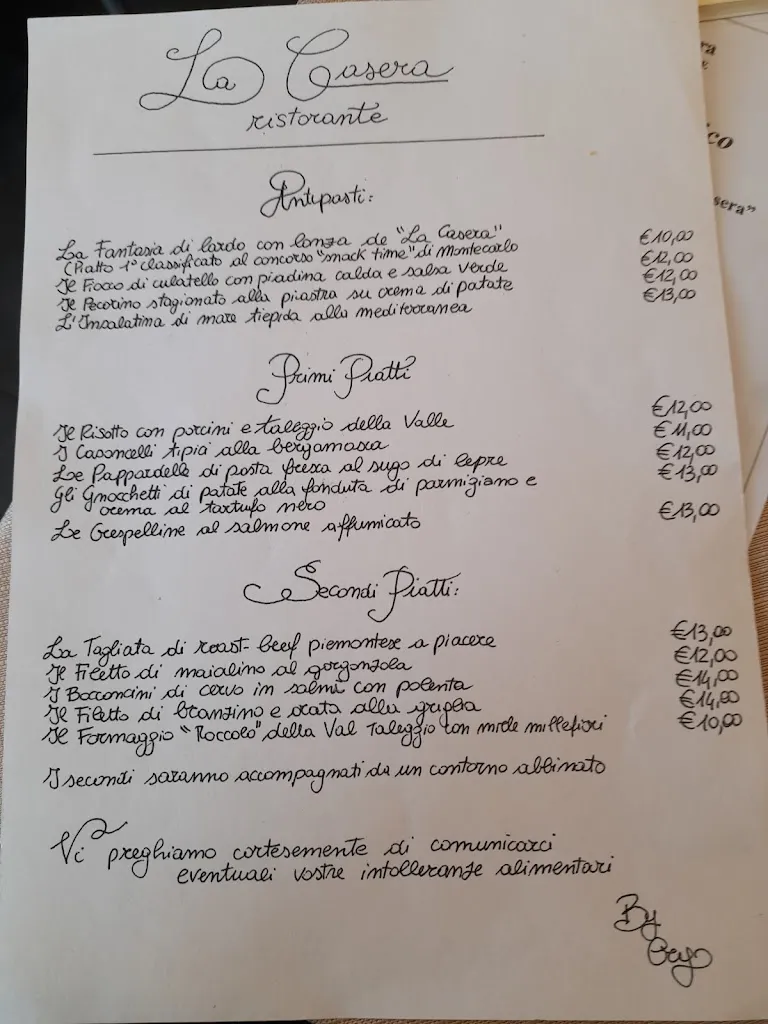 La Casera
ristorante
Antipasti:
La Fantasia di lardo con lonza de "La Casera" €10,00
(Piatto 1° classificato al concorso "snack time" di Montecarlo
Il Fiocco di culatello con piadina calda e salsa verde €12,00
Il Pecorino stagionato alla piastra su crema di patate €12,00
L'Insalatina di mare tiepida alla mediterranea €13,00
Primi Piatti
Il Risotto con porcini e taleggio della Valle €12,00
I Casoncelli tipici alla bergamasca €11,00
Le Pappardelle di pasta fresca al sugo di lepre €12,00
Gli Gnocchetti di patate alla fonduta di parmigiano e €13,00
crema al tartufo nero
Le Crespelline al salmone affumicato €13,00
Secondi Piatti:
La Tagliata di roast-beef piemontese a piacere €13,00
Il Filetto di maialino al gorgonzola €12,00
I Bocconcini di cervo in salmì con polenta €14,00
Il Filetto di branzino e orata alla griglia €14,00
Il Formaggio "Roccolo" della Val Taleggio con miele millefiori €10,00
I secondi saranno accompagnati da un contorno abbinato
Vi preghiamo cortesemente di comunicarci
eventuali vostre intolleranze alimentari
By
sera"